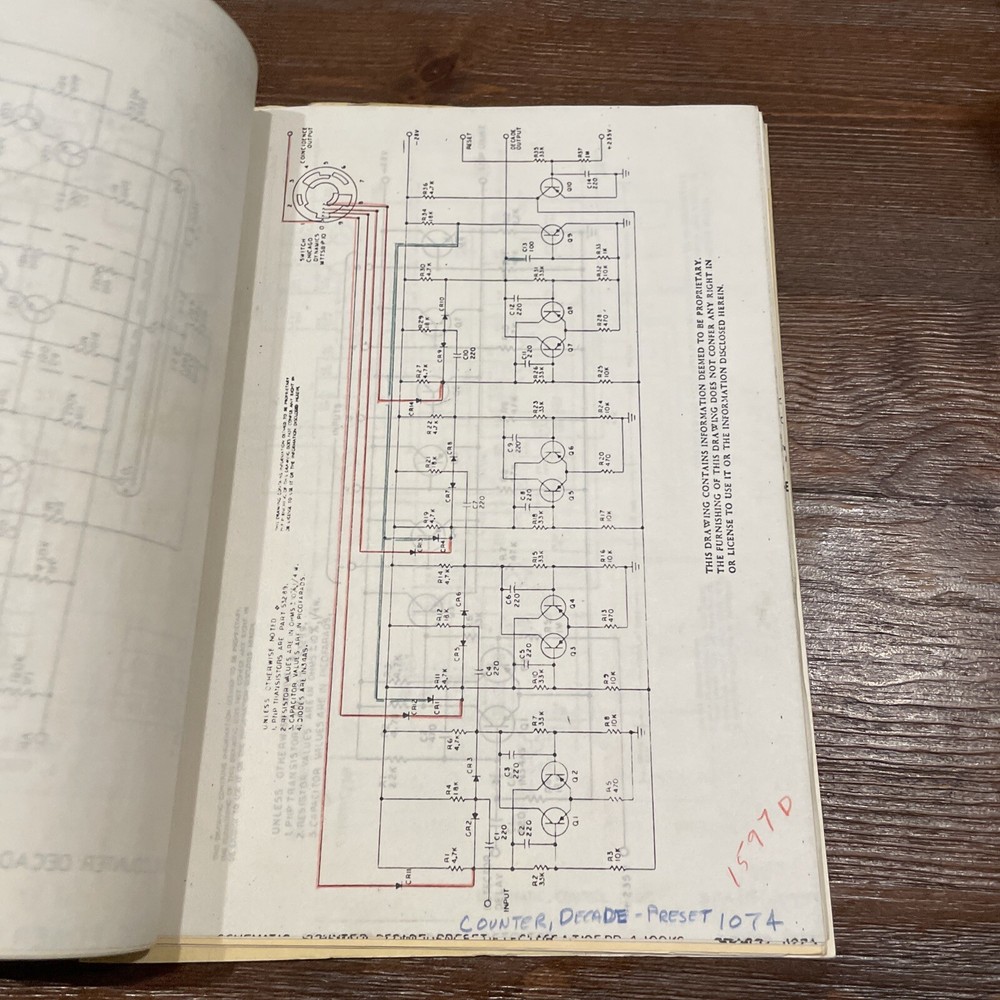 COINCIDENCE
OUTPUT
SWITCH
CHICAGO
DYNAMICS
1
2
3
4
5
6
7
-28V
RESET
DECADE
OUTPUT
+235V
R36
4.7K
R34
18K
R30
4.7K
R29
18K
R27
4.7K
R22
4.7K
R21
R19
4.7K
R14
4.7K
R12
18K
R11
4.7K
R6
4.7K
R4
18K
R1
4.7K
CR10
CR9
CR14
CR8
CR7
CR13
CR4
CR6
CR5
CR12
CR1
CR3
CR2
CR11
C10
220
C7
220
C4
220
C1
220
INPUT
R35
33K
R37
1K
C14
220
Q10
Q9
C13
100
R33
1K
R32
10K
R31
33K
C12
220
Q8
Q7
R28
470
C11
220
R26
33K
R25
10K
R23
33K
R24
10K
C9
220
Q6
Q5
R20
470
C8
220
R18
33K
R17
10K
R15
33K
R16
10K
C6
220
Q4
Q3
R13
470
C5
220
R10
33K
R9
10K
R7
33K
R8
10K
C3
220
Q2
Q1
R5
470
C2
220
R2
33K
R3
10K
UNLESS OTHERWISE NOTED
1. PNP TRANSISTORS ARE PART 53289.
2. RESISTOR VALUES ARE IN OHMS,
3. CAPACITOR VALUES ARE IN PICOFARADS.
4. DIODES ARE
THIS DRAWING CONTAINS INFORMATION DEEMED TO BE PROPRIETARY.
THE FURNISHING OF THIS DRAWING DOES NOT CONFER ANY RIGHT IN
OR LICENSE TO USE IT OR THE INFORMATION DISCLOSED HEREIN.
1597D
COUNTER, DECADE - PRESET 1074